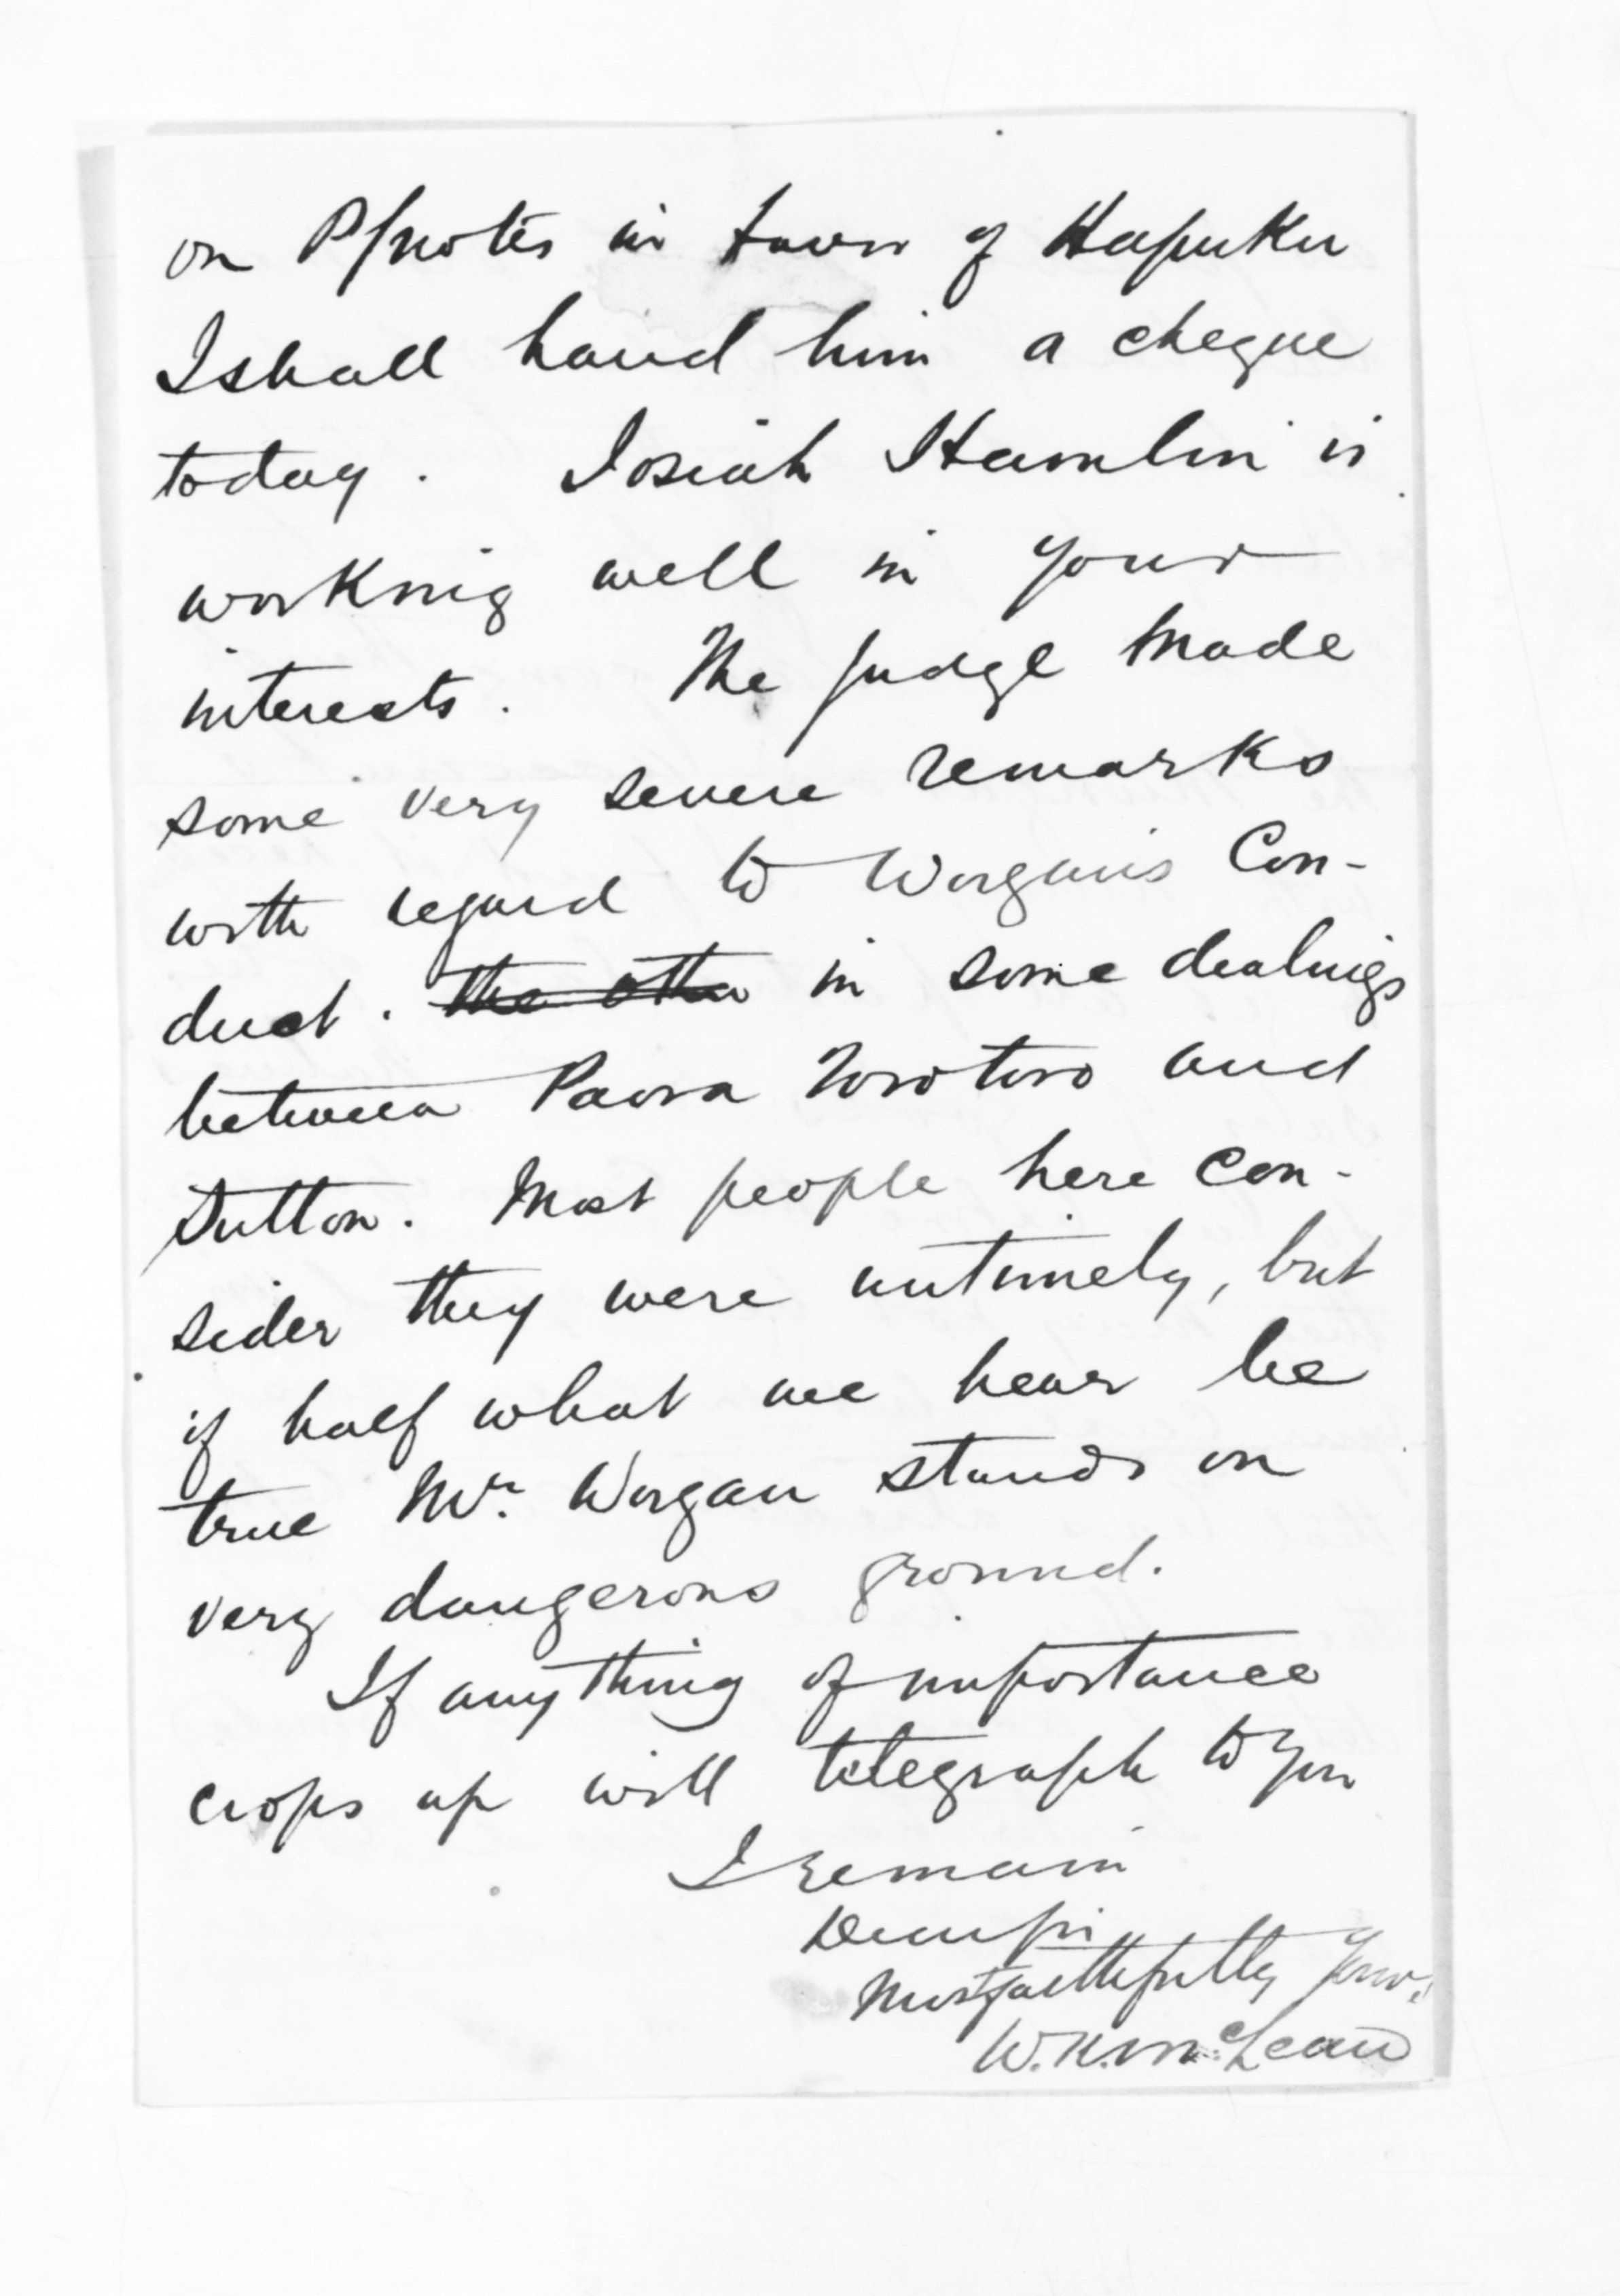 on P/notes in favor of Hapuku
I shall hand him a cheque
today. Josiah Hamlin is
working well in your
interests. The Judge made
some very severe remarks
with regard to Worgan's Con-
duct. the othe in some dealings
between Paora Torotoro and
Sutton. Most people here con-
sider they were untimely, but
if half what we hear be
true Mr. Worgan stands on
very dangerous ground.
If anything of importance
crops up will telegraph to you
I remain
Dear Sir
Most faithfully Yours
W.K. McLean